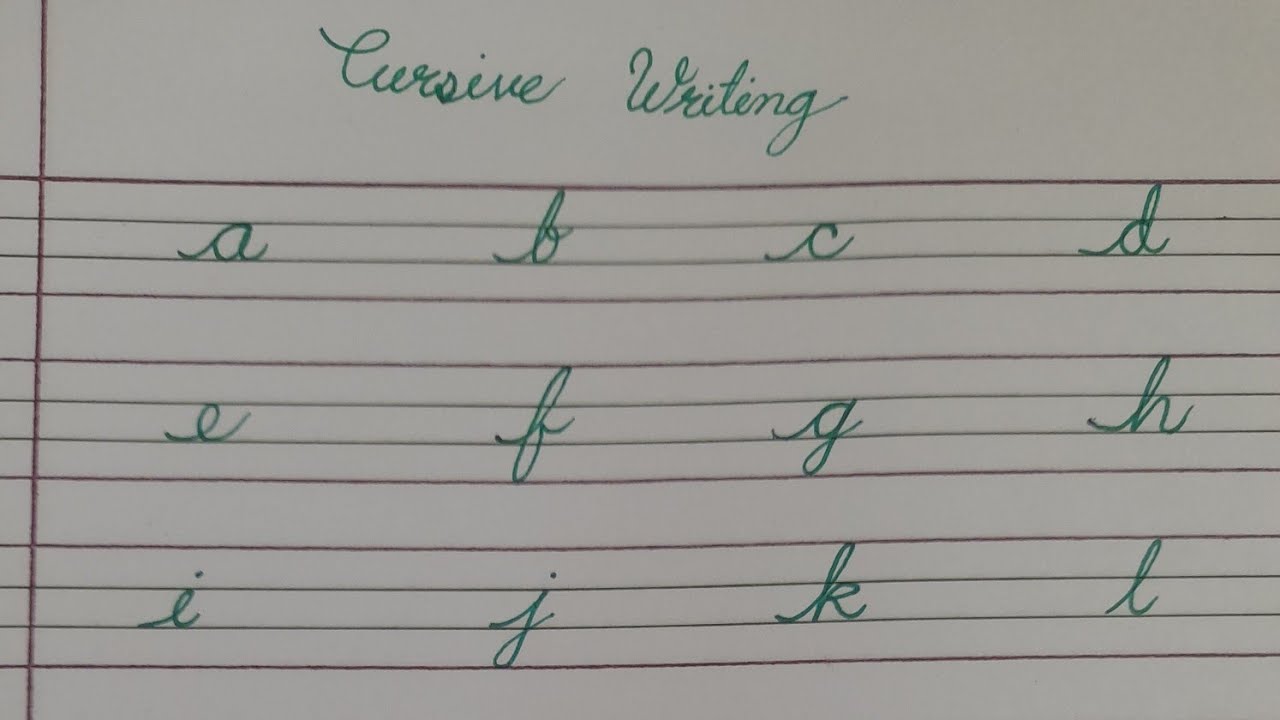 Cursive Writing
a b c d
e f g h
i j k l